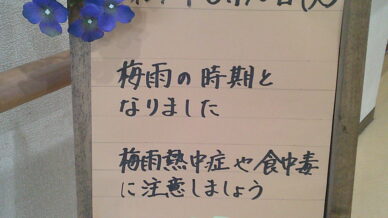 梅雨の時期と
なりました
梅雨熱中症や食中毒
に注意しましょう